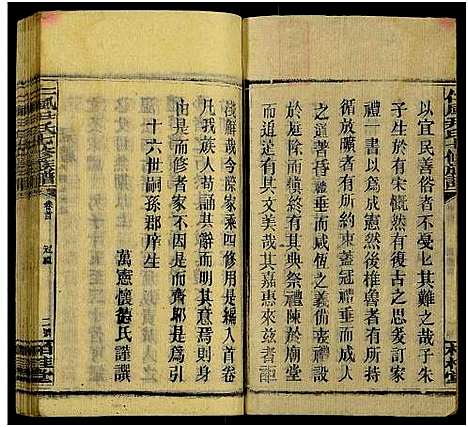 以宜民善俗者不憂乜其難之哉朱
子生於有宋慨然有復古之思爰訂家
禮一書以爲成憲然後椎魯者有所
依放曠者有所約束蓋冠禮垂成人
之道著昏禮垂咸恆之義備喪禮嚴
於庭除而慎終有其典祭禮陳於廟堂
而追遠有其文美哉其嘉惠來兹者詎
淺鮮哉今深家乘四修用是編入首卷
凡我族人苟誦其辭而明其意焉則身
由是而修者家不因是而齊耶是爲引
十六世嗣孫郡庠生
萬憲懷德氏謹譔
卷首